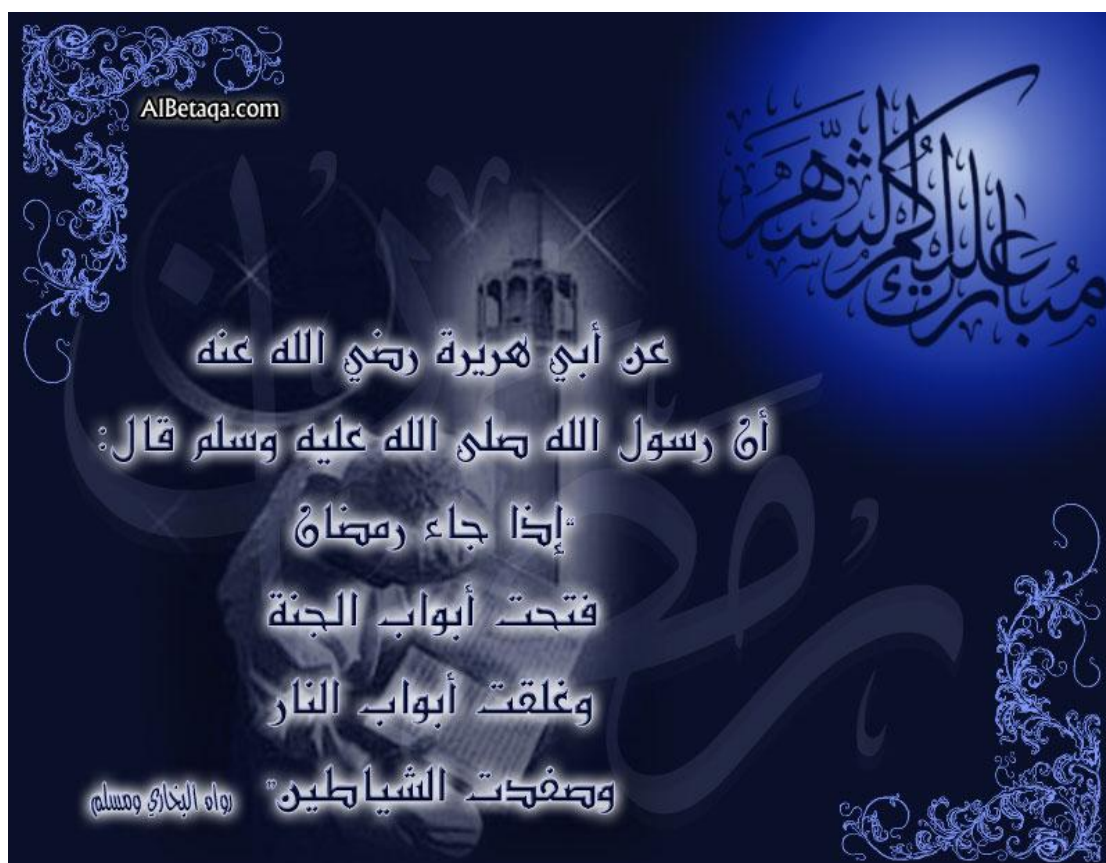 AlBetaqa.com
مبارك عليكم الشهر
رمضان
عن أبي هريرة رضي الله عنه
أن رسول الله صلى الله عليه وسلم قال:
"إذا جاء رمضان
فتحت أبواب الجنة
وغلقت أبواب النار
وصفدت الشياطين"
رواه البخاري ومسلم